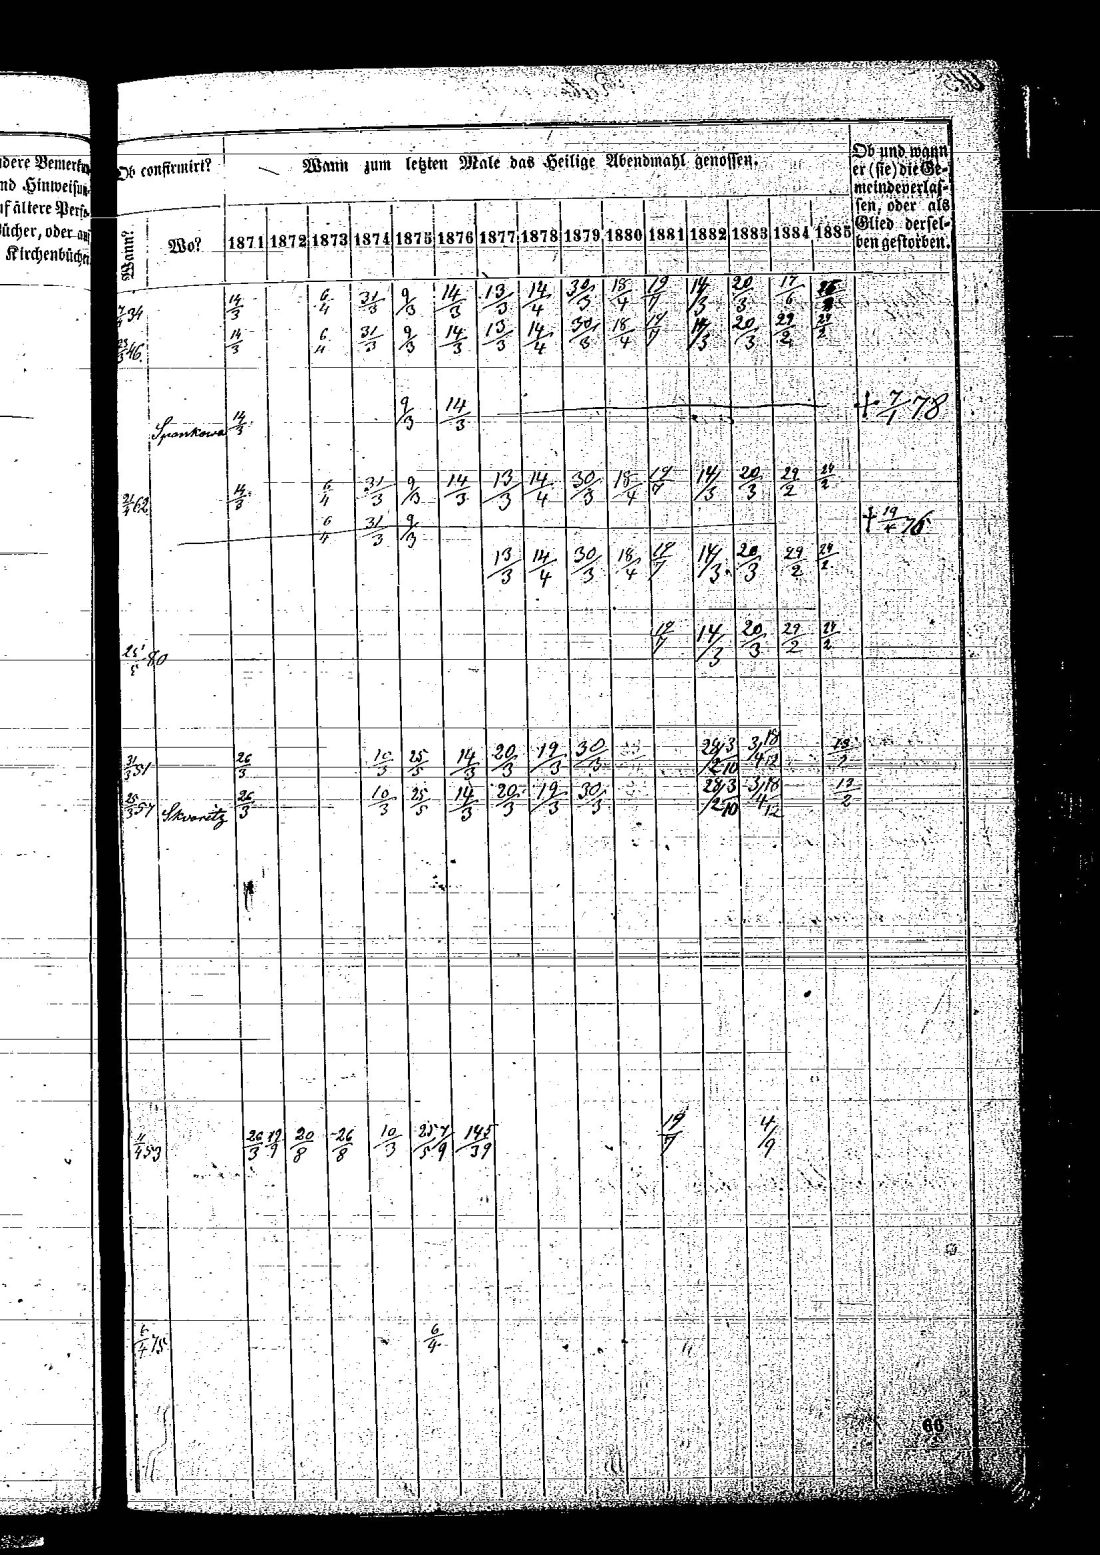 Ob confirmirt?
Wann zum letzten Male das Heilige Abendmahl genossen.
Ob und wann
er (sie) die Ge-
meinde verlas-
sen, oder als
Glied dersel-
ben gestorben.
Wann?
Wo?
1871 1872 1873 1874 1875 1876 1877 1878 1879 1880 1881 1882 1883 1884 1885
34 14/3 6/4 31/3 9/3 14/3 13/3 14/4 30/3 18/4 19/7 14/3 20/3 17/6
46 14/3 6/4 31/3 9/3 14/3 13/3 14/4 30/3 18/4 19/7 14/3 20/3 29/2 24/2
Spankowa 14/3 9/3 14/3 † 7/1 78
62 14/3 6/4 31/3 9/3 14/3 13/3 14/4 30/3 18/4 19/7 14/3 20/3 29/2 24/2
6/4 31/3 9/3 † 19/4 76
13/3 14/4 30/3 18/4 19/7 14/3 20/3 29/2 24/2
25/5 80 19/7 14/3 20/3 29/2 24/2
31/3 51 26/3 10/3 25/5 14/3 20/3 19/3 30/3 28/2 3/10 3/4 18/12
25/3 57 Skworitz 26/3 10/3 25/5 14/3 20/3 19/3 30/3 28/2 3/10 3/4 18/12
53 26/3 20/8 26/8 10/3 25/5 7/9 14/3 5/9 19/7 4/9
6/4 75 6/4
66
dere Bemerkun-
nd Hinweisun-
uf ältere Perso-
ücher, oder auf
Kirchenbücher.